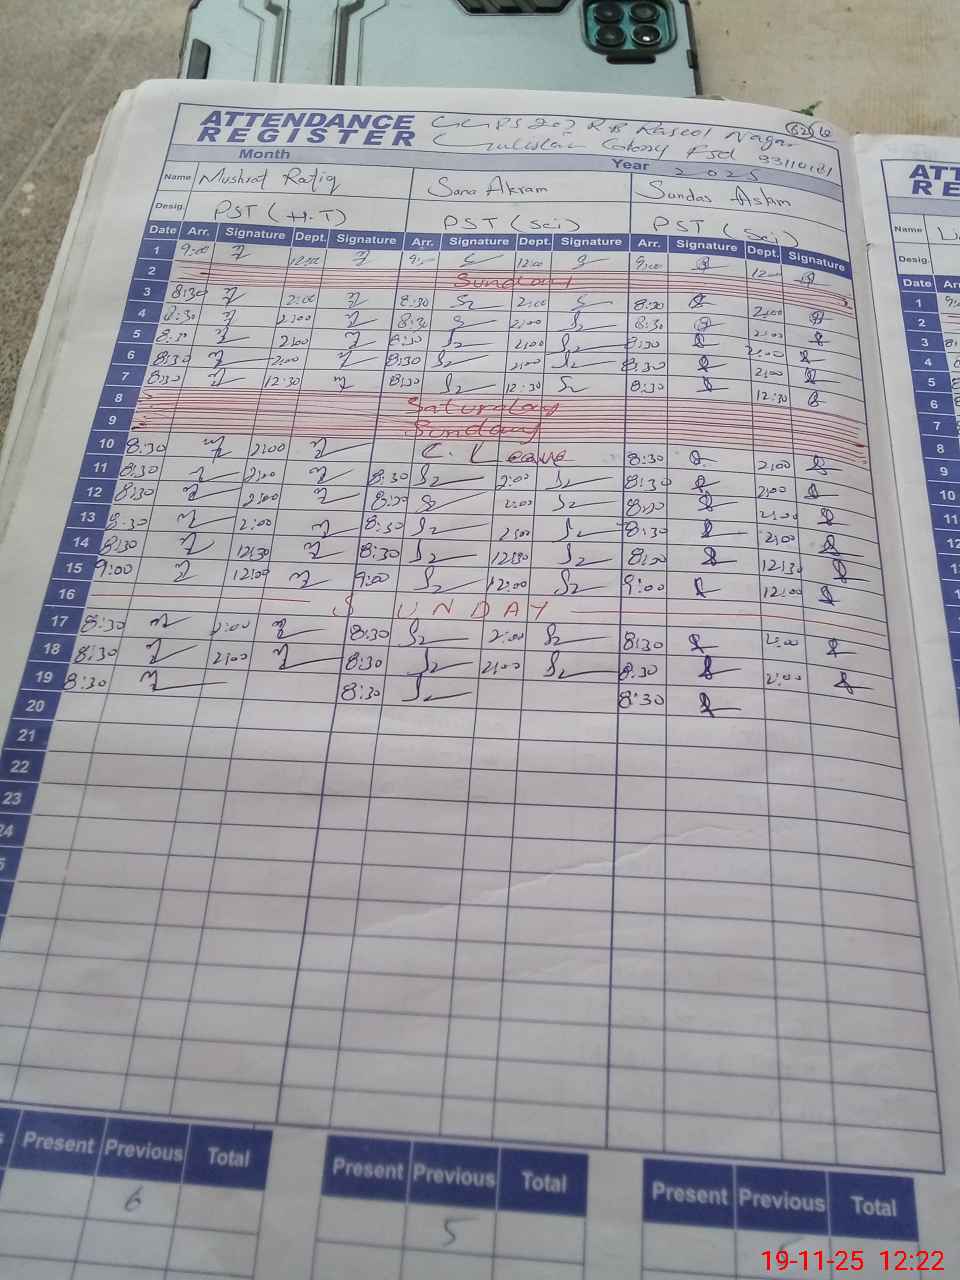 ATTENDANCE REGISTER
GGPS 202 RB Rasool Nagar
Gulistan Colony Fsd 33110181
Month Year 2025
Name Mushrat Rafiq Sana Akram Sundas Aslam
Desig. PST (H.T) PST (Sci) PST (Sci)
Date Arr. Signature Dept. Signature Arr. Signature Dept. Signature Arr. Signature Dept. Signature
1 9:00 12:00 9:00 12:00 9:00 12:00
2 Sunday
3 8:30 2:00 8:30 2:00 8:30 2:00
4 8:30 2:00 8:30 2:00 8:30 2:00
5 8:30 2:00 8:30 2:00 8:30 2:00
6 8:30 2:00 8:30 2:00 8:30 2:00
7 8:30 12:30 8:30 12:30 8:30 12:30
8 Saturday
9 Sunday
10 8:30 2:00 C. Leave 8:30 2:00
11 8:30 2:00 8:30 2:00 8:30 2:00
12 8:30 2:00 8:30 2:00 8:30 2:00
13 8:30 2:00 8:30 2:00 8:30 2:00
14 8:30 12:30 8:30 12:30 8:30 12:30
15 9:00 12:00 9:00 12:00 9:00 12:00
16 SUNDAY
17 8:30 2:00 8:30 2:00 8:30 2:00
18 8:30 2:00 8:30 2:00 8:30 2:00
19 8:30 8:30 8:30
20
21
22
23
24
Present Previous Total Present Previous Total Present Previous Total
6 5
ATT
RE
Name
Desig.
Date Arr
1
2
3
4
5
6
7
8
9
10
11
12
19-11-25 12:22